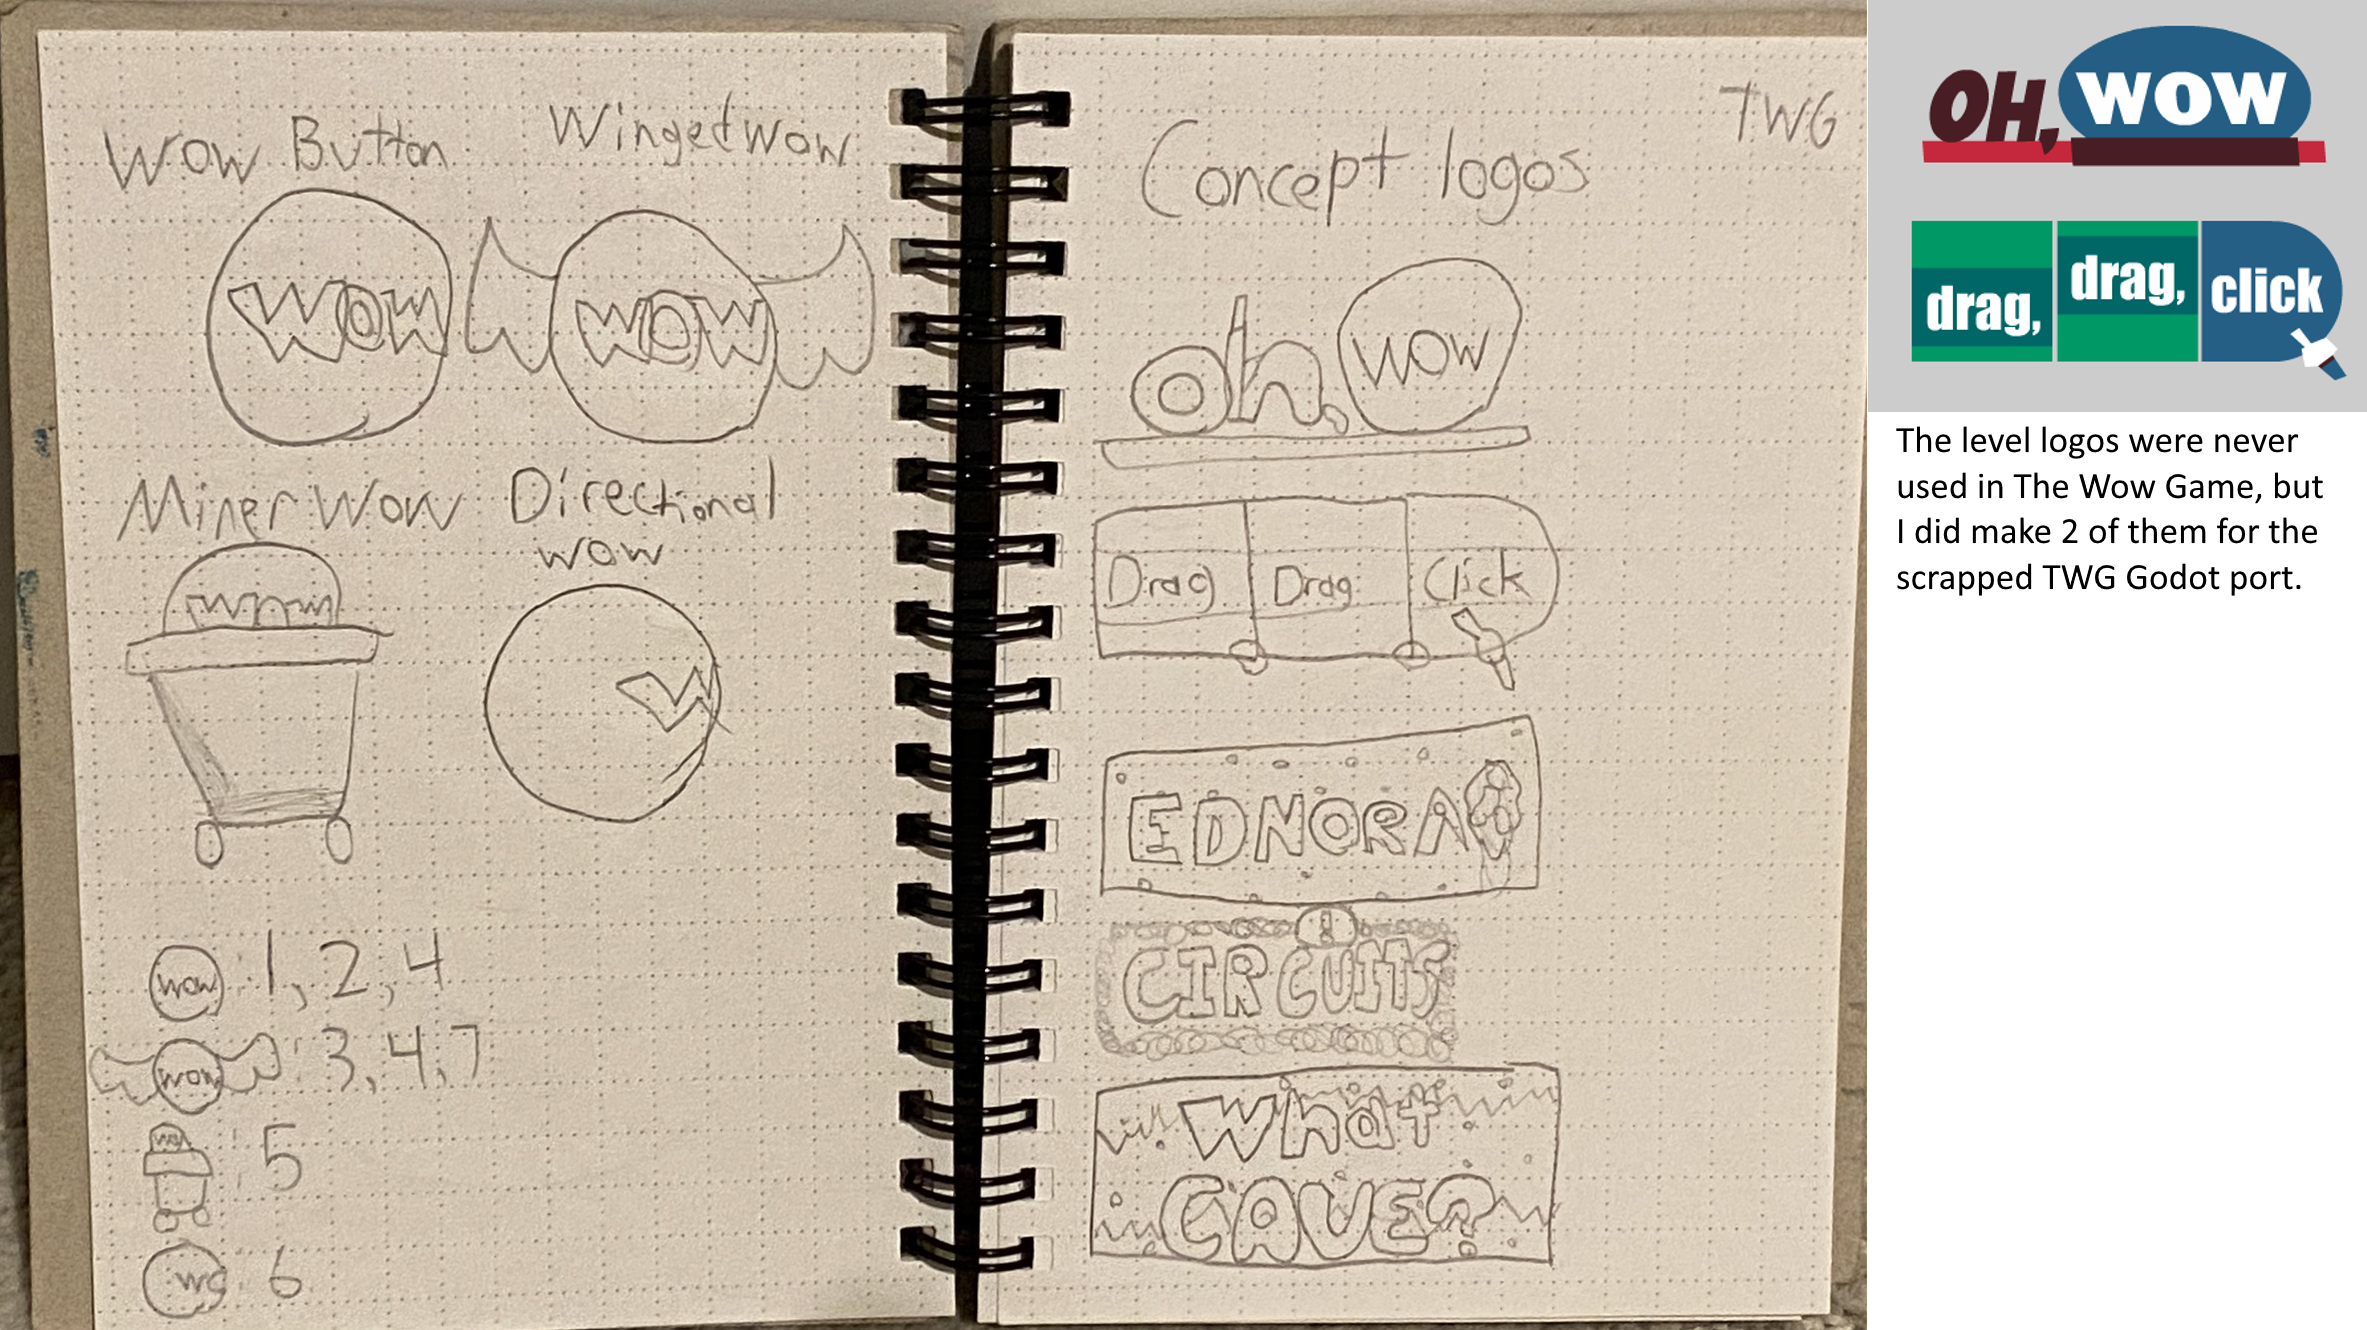 Wow Button
Wingedwow
wow
wow
Miner Wow
Directional
wow
wow
W
wow : 1, 2, 4
wow : 3, 4, 7
: 5
wo : 6
TWG
Concept logos
oh, wow
Drag Drag Click
EDNORA
!
CIRCUITS
What
CAVE?
OH, WOW
drag, drag, click
The level logos were never
used in The Wow Game, but
I did make 2 of them for the
scrapped TWG Godot port.